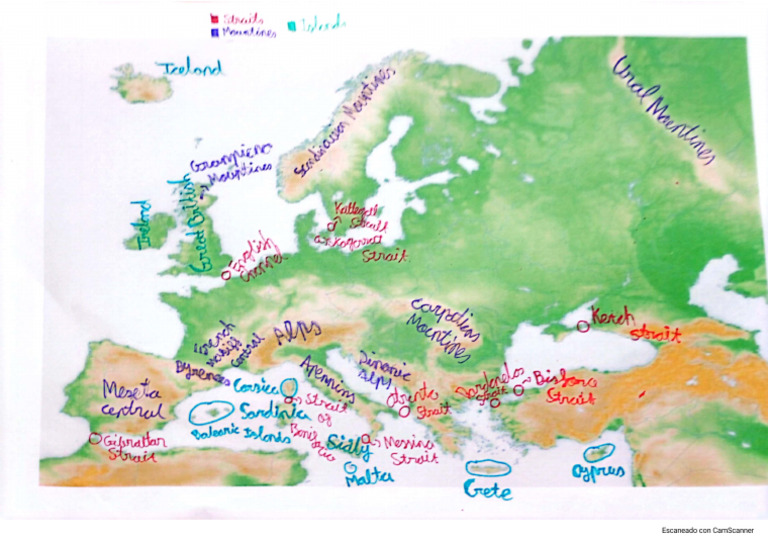 Straits
Mountines
Islands
Iceland
Ural Mountines
Scandinavian Mountines
Grampians
Mountines
Great British
Ireland
Kattegat
Strait
Skagerrak
Strait
English
Channel
French
Massif
Central
Alps
Carpatiens
Mountines
Kerch
Strait
Pyrenees
Apennins
Dinaric
Alps
Meseta
central
Corsica
Sardinia
Balearic Islands
Strait
of
Bonifacio
Otranto
Strait
Dardanelos
Strait
Bisforo
Strait
Gibraltar
Strait
Sicily
Messina
Strait
Malta
Crete
Cyprus
Escaneado con CamScanner